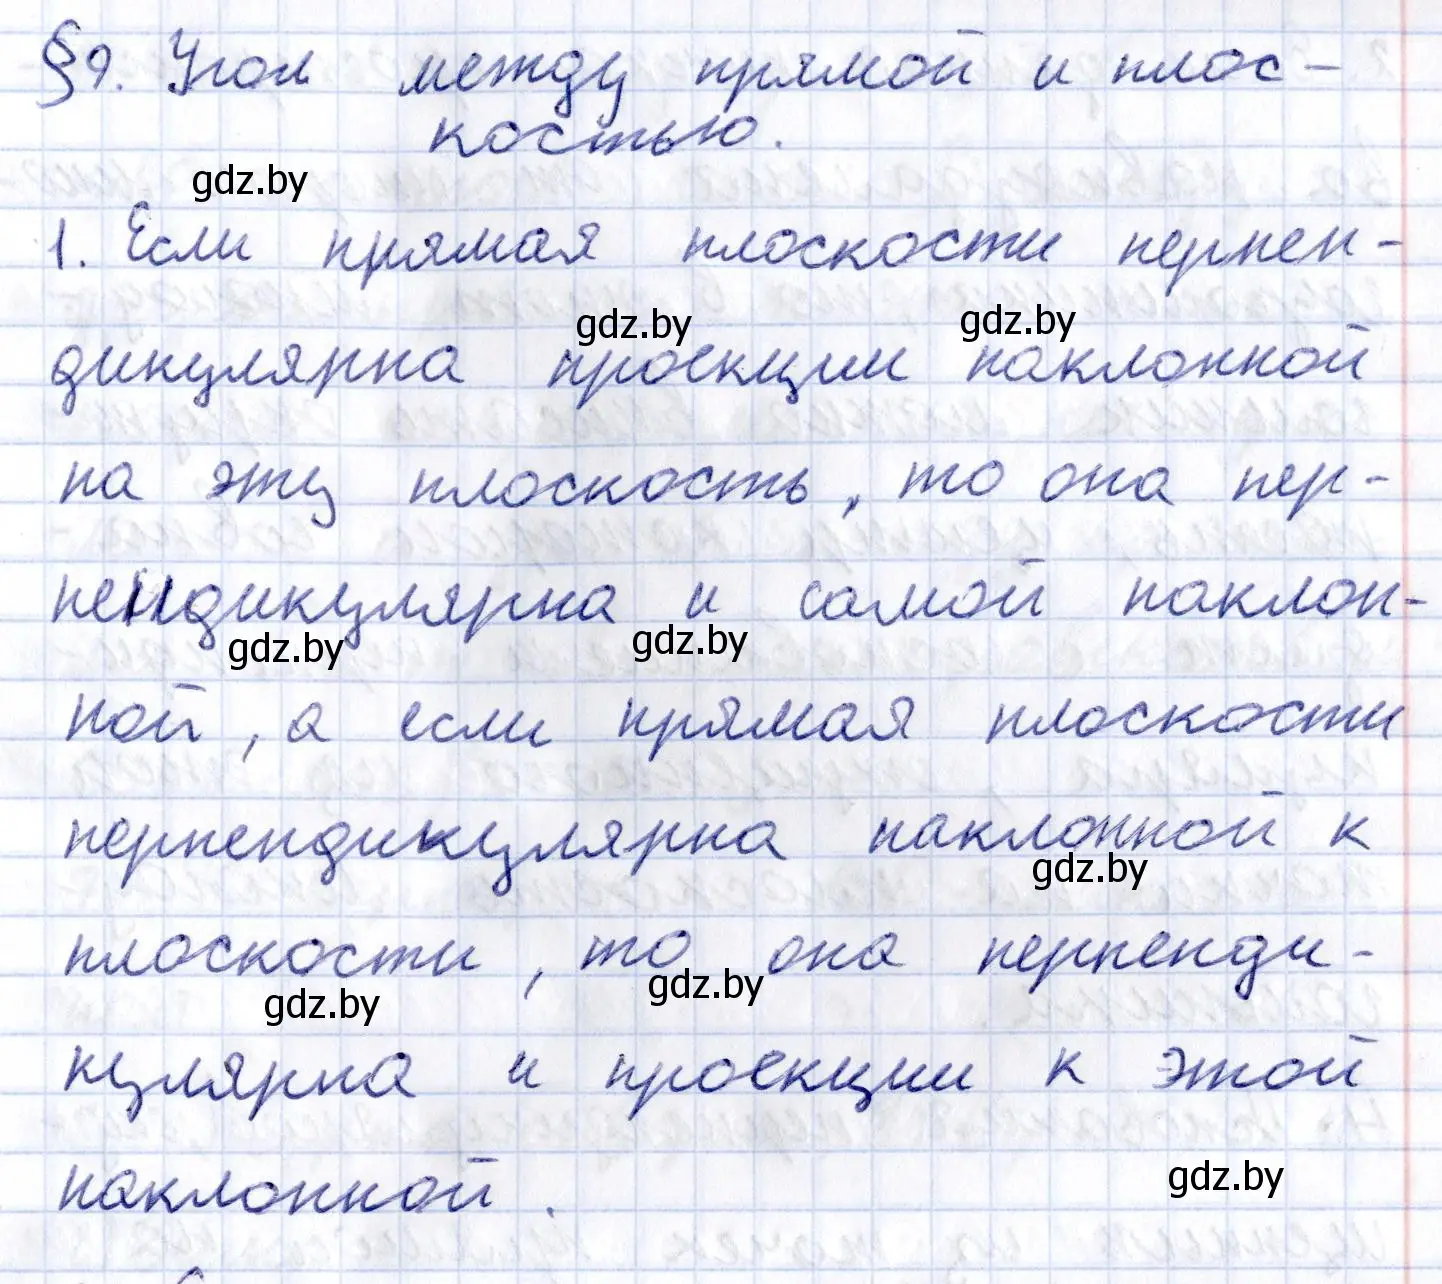 §9. Угол между прямой и плос-
костью.
gdz.by
1. Если прямая плоскости перпен-
gdz.by gdz.by
дикулярна проекции наклонной
на эту плоскость, то она пер-
пендикулярна и самой наклон-
gdz.by gdz.by
ной, а если прямая плоскости
перпендикулярна наклонной к
gdz.by
плоскости, то она перпенди-
gdz.by gdz.by
кулярна и проекции к этой
наклонной.
gdz.by